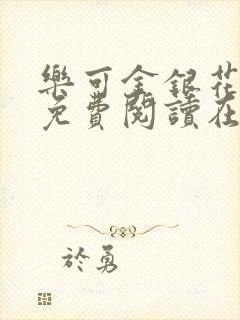 樂可金銀花
免費閱讀在
於勇